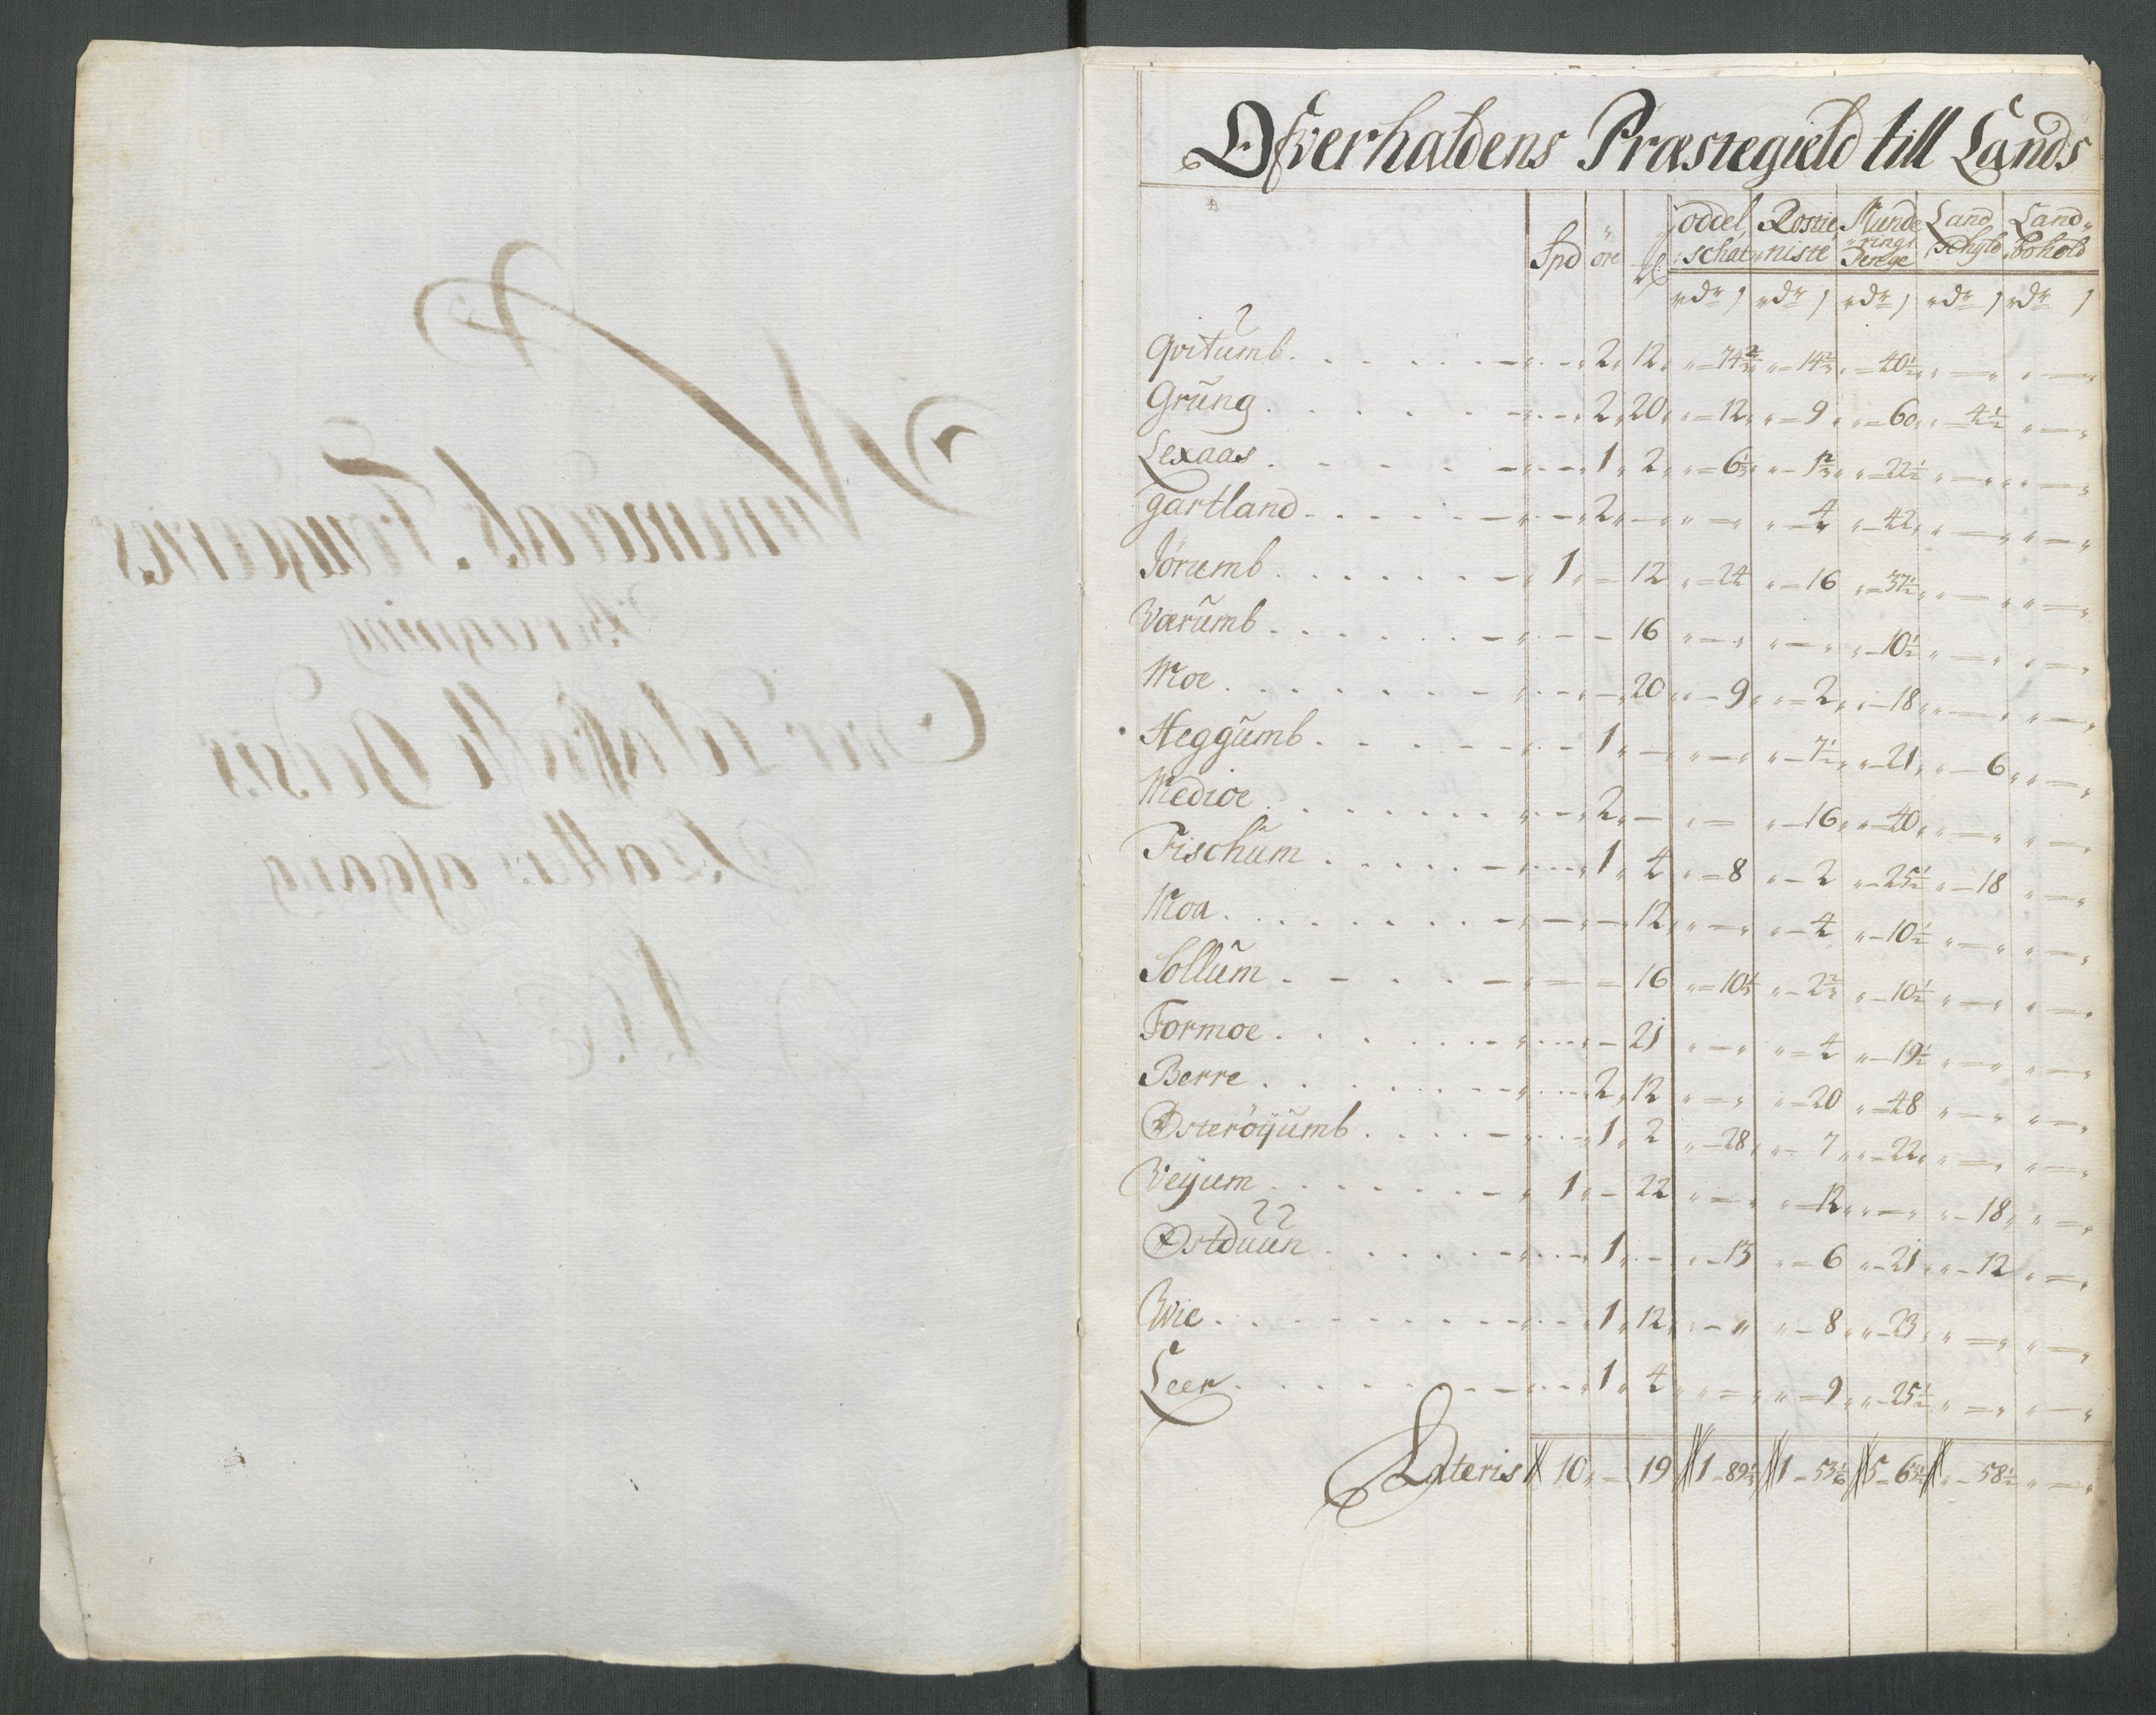 Ofverhaldens Præstegield till Lands
Spd öre oddel Rostie Munde Land Land
schat niste rings schyld bohold
Penge
Gvitumb 2 12 74 2/3 14 2/3 40 1/2
Grŭng 2 20 12 9 60 4 1/2
Lexaas 1 2 6 1/3 1 2/3 22 1/2
gartland 2 4 42
Jörumb 1 12 24 16 37 1/2
Værŭmb 16 10 1/2
Moe 20 9 2 18
Heggŭmb 1 7 1/2 21 6
Medioe 2 16 40
Fischŭm 1 4 8 2 25 1/2 18
Moa 12 4 10 1/2
Sollŭm 16 10 1/3 2 2/3 10 1/2
Formoe 21 4 19 1/2
Berre 2 12 20 48
Østeröÿŭmb 1 2 28 7 22
Veÿum 1 22 12 18
Østduun 1 13 6 21 12
Wie 1 12 8 23
Leer 1 4 9 25 1/2
Lateris 10 19 1 89 1/3 1 53 1/6 5 65 1/2 58 1/2